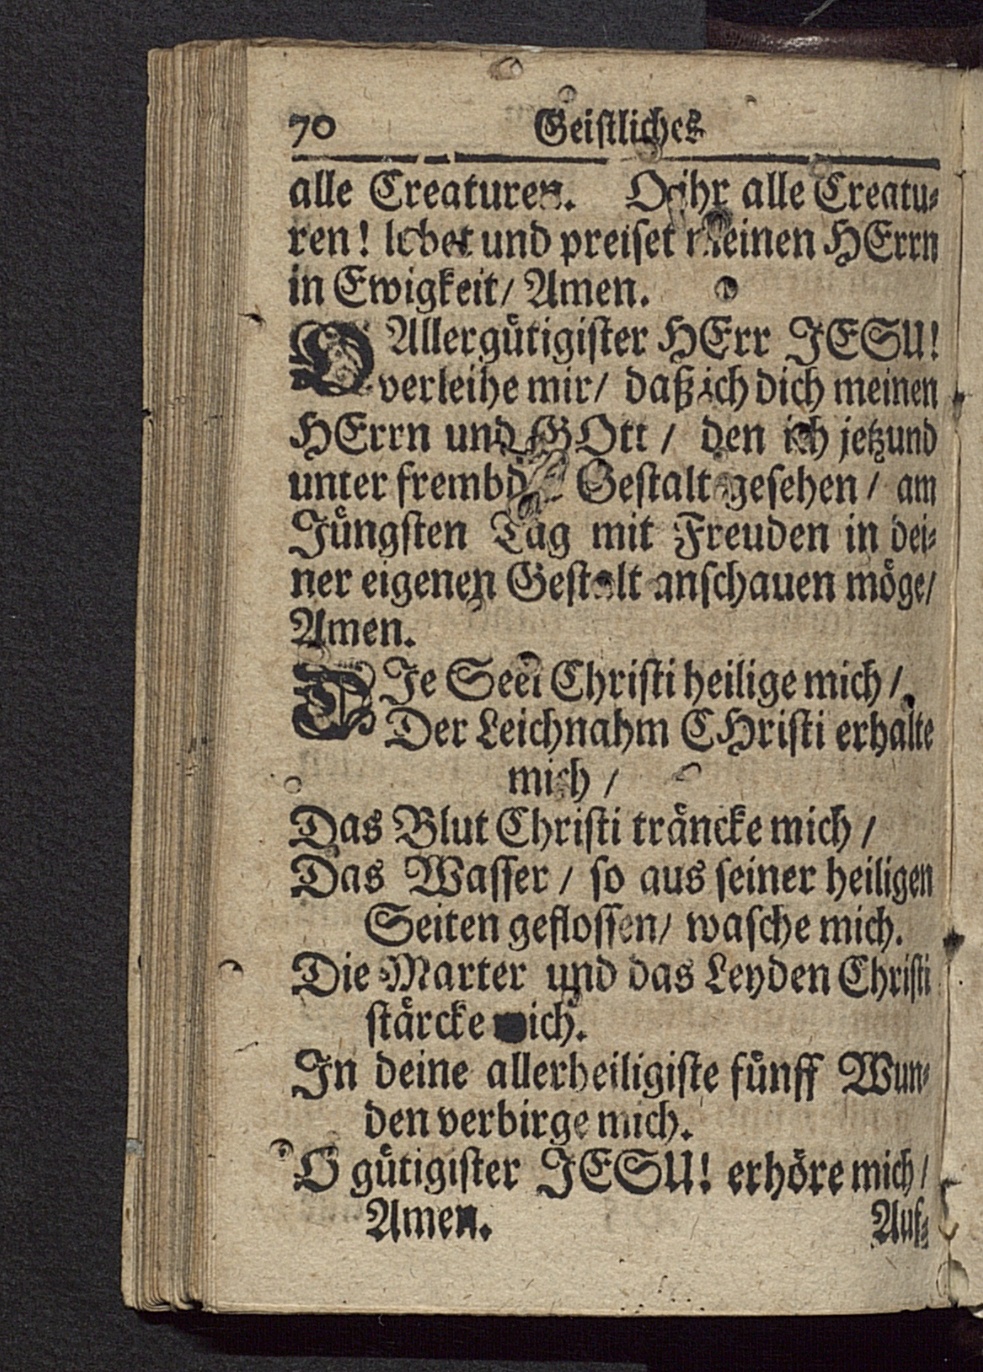 70 Geistliches
alle Creaturen. O ihr alle Creatu-
ren! lobet und preiset meinen HErrn
in Ewigkeit/ Amen.
O Allergütigister HErr JESU!
verleihe mir/ daß ich dich meinen
HErrn und GOtt / den ich jetzund
unter frembder Gestalt gesehen / am
Jüngsten Tag mit Freuden in dei-
ner eigenen Gestalt anschauen möge/
Amen.
DJe Seel Christi heilige mich /
Der Leichnahm CHristi erhalte
mich /
Das Blut Christi träncke mich /
Das Wasser / so aus seiner heiligen
Seiten geflossen/ wasche mich.
Die Marter und das Leyden Christi
stärcke mich.
In deine allerheiligiste fünff Wun-
den verbirge mich.
O gütigister JESU! erhöre mich/
Amen. Auf-